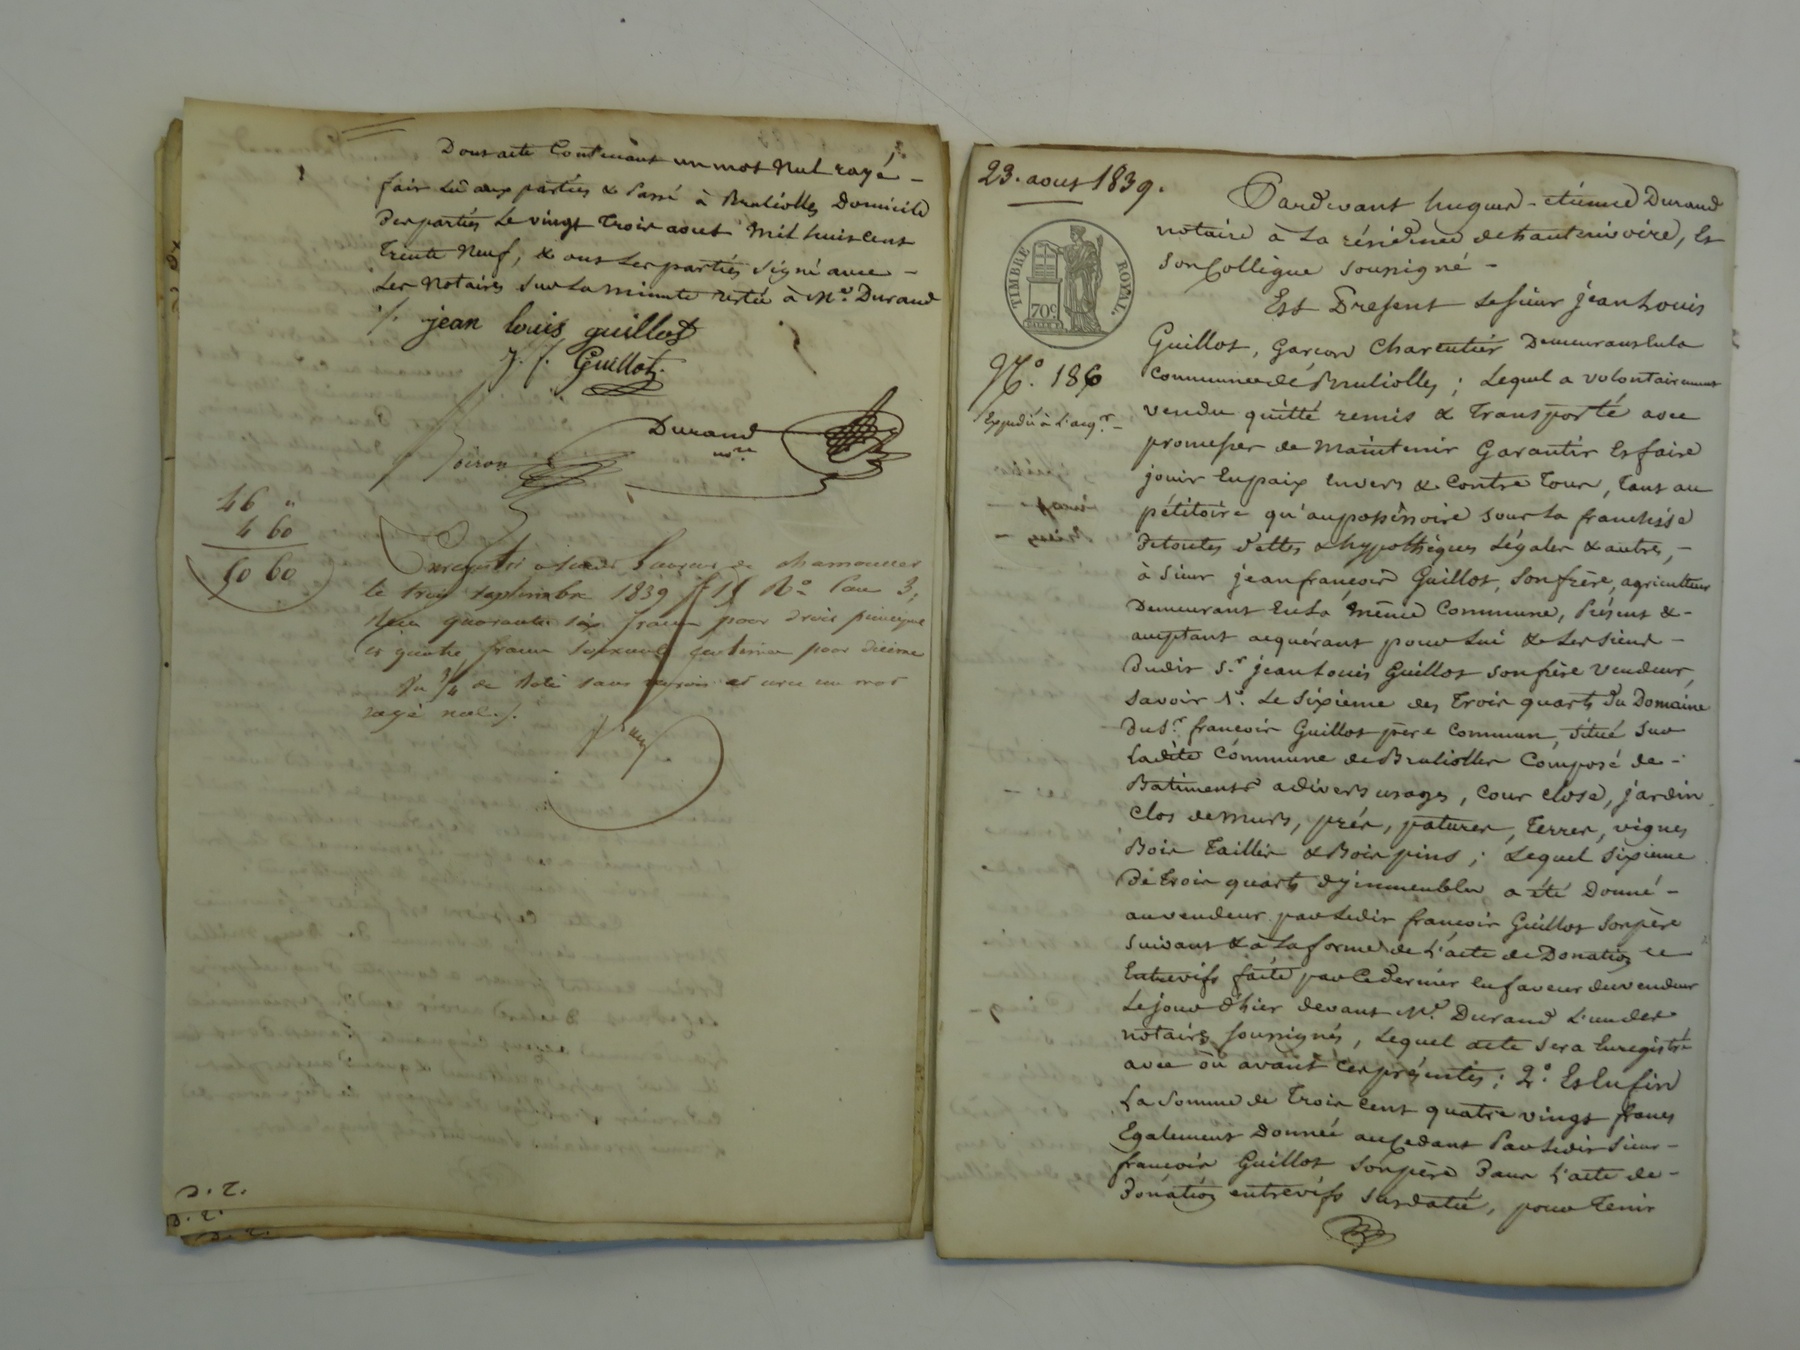 Dont acte Contenant un mot Nul rayé –
fait Lu aux parties & Passé à Brulliolles Domicile
Des parties Le vingt Trois aout Mil huit Cent
Trente Neuf, & ont Les parties Signé avec –
Les Notaires Sur La Minute restée à Me. Durand
jean louis guillot
J. f. Guillot.
Durand
nore
Voiron
46 "
4 60
50 60
Enregistré à Saint Laurent de chamousset
le trois Septembre 1839 fo 15 Ro Case 3,
Reçu quarante six francs pour droit principal
et quatre francs soixante centimes pour dixième
Vu 1/4 de Rôle sans renvoi et avec un mot
rayé nul ./.
D. T.
D. T.
D. T.
23. aout 1839.
TIMBRE ROYAL.
70c
No. 186
Expédié à L'acqr. –
Pardevant hugues-étienne Durand
notaire à La résidence de hauterivoire, Et
Son Collègue soussigné –
Est Présent Le sieur jean Louis
Guillot, Garçon Charcutier Demeurant En La
Commune de Brullioles ; Lequel a volontairement
vendu quitté remis & Transporté avec
promesse de Maintenir Garantir Et faire
jouir En paix Envers & Contre Tous, Tant au
pétitoire qu'au possessoire sous La franchise
De toutes Dettes & hypothèques Légales & autres, –
à Sieur jean françois Guillot, Son frère, agriculteur
Demeurant En La Même Commune, Présent & –
acceptant acquérant pour Lui & Les Siens –
Dudit Sr. jean Louis Guillot son frère Vendeur,
Savoir 1o. Le Sixième des Trois quarts Du Domaine
Du Sr. françois Guillot père Commun, Situé Sur
Ladite Commune de Brullioles Composé de –
Batiments à divers usages, Cour close, jardin
Clos de murs, prés, patures, Terres, vignes
Bois Taillis & Bois pins ; Lequel Sixième
De trois quarts d'immeubles a été Donné –
au vendeur par Ledit françois Guillot Son père
Suivant & à La forme de L'acte de Donation
Entrevifs faite par Ce dernier En faveur du vendeur
Le jour d'hier devant Me. Durand L'un des
notaires soussignés, Lequel acte Sera Enregistré
avec ou avant Ces présentes ; 2o. Et Enfin
La Somme de Trois cent quatre vingt francs
Egalement Donnée au Cédant Par Ledit Sieur –
françois Guillot Son père Dans L'acte de –
Donation entrevifs Susdatée, pour Tenir